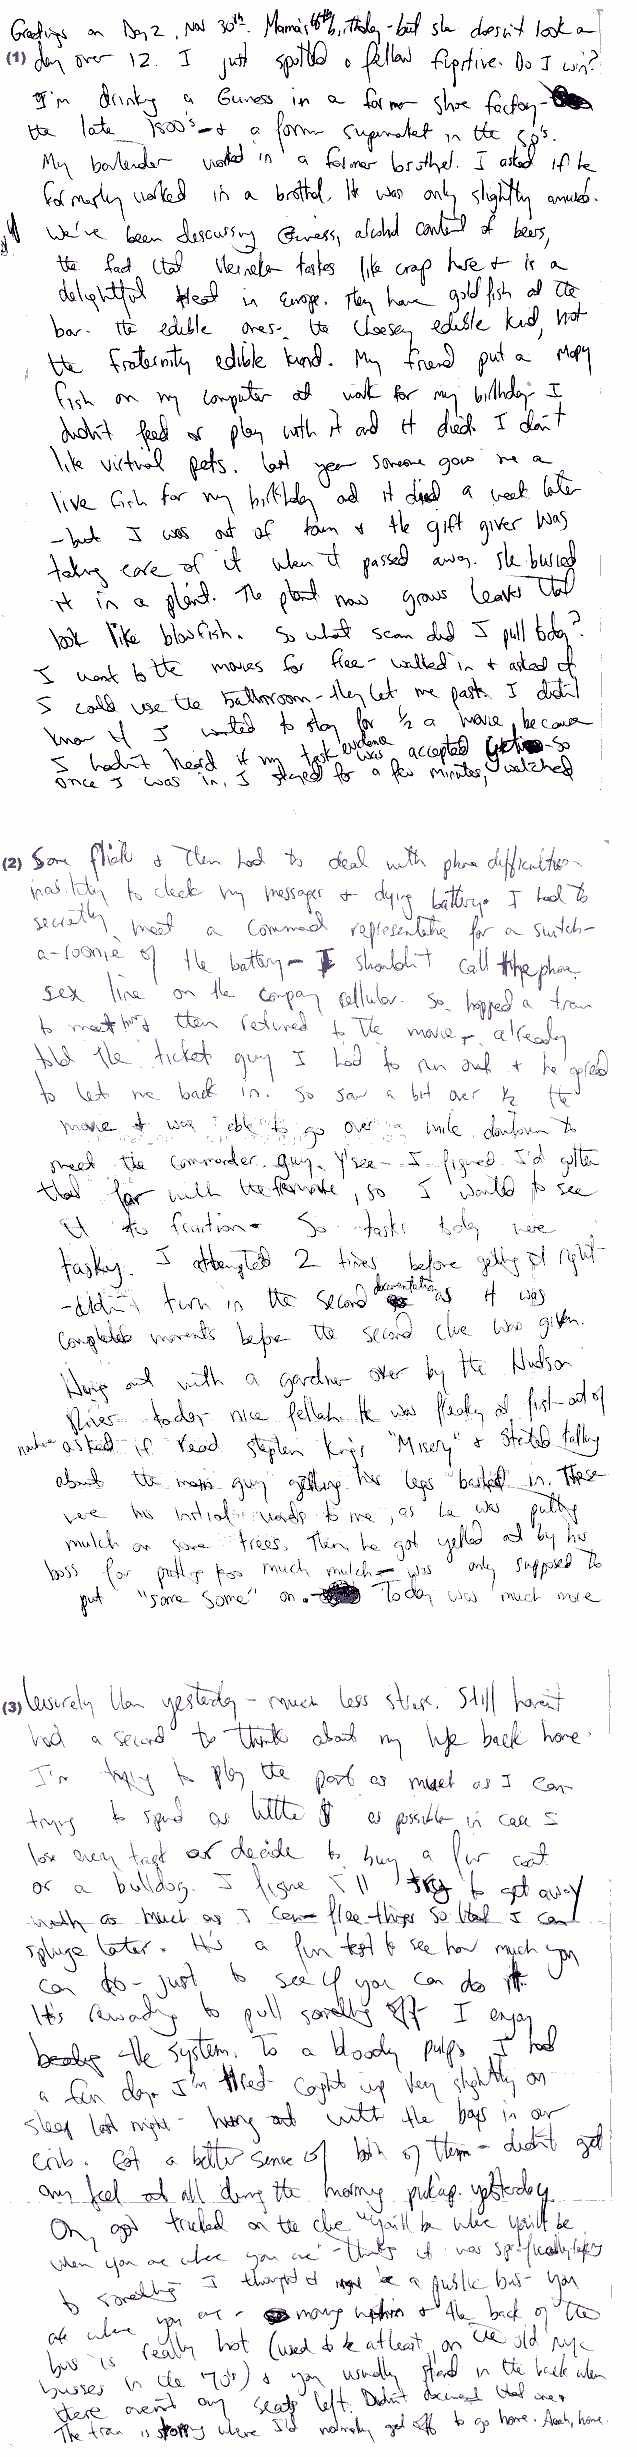 Greetings on Day 2, Nov 30th. Mama's birthday - but she doesn't look a
(1) day over 12. I just spotted a fellow fugitive. Do I win?
I'm drinking a Guness in a former shoe factory -
the late 1800's - & a former supermarket in the 50's.
My bartender worked in a former brothel. I asked if he
formerly worked in a brothel. It was only slightly amused.
We've been descussing Guness, alcohol content of beers,
the fact that Heineken tastes like crap here & is a
delightful treat in Europe. They have gold fish at the
bar. the edible ones - the cheesey edible kind, not
the fraternity edible kind. My friend put a mopy
fish on my computer at work for my birthday - I
didn't feed or play with it and it died. I don't
like virtual pets. Last year someone gave me a
live fish for my birthday and it died a week later
- but I was out of town & the gift giver was
taking care of it when it passed away. She buried
it in a plant. The plant now grows leaves that
look like blowfish. So what scam did I pull today?
I went to the movies for free - walked in & asked if
I could use the bathroom - they let me past. I didn't
know if I wanted to stay for 1/2 a movie, because
I hadn't heard if my task evidence was accepted so
once I was in, I stayed for a few minutes, watched
(2) some flick & then had to deal with phone difficulties -
inability to check my messages & dying battery. I had to
secretly meet a Command representative for a switch-
a-roonie of the battery - I shouldn't call the phone
sex line on the company cellular. So hopped a train
to meet him & then returned to the movie, already
told the ticket guy I had to run out & he agreed
to let me back in. So saw a bit over 1/2 the
movie & was able to go over a mile downtown to
meet the commander guy. Y'see - I figured I'd gotten
that far with the free movie, so I would to see
it to fruition. So tasks today were
tasky. I attempted 2 times before getting it right -
- didn't turn in the second documentation as it was
completed moments before the second clue was given.
Hung out with a gardner over by the Hudson
River today nice fellah. He was freaky at first - out of
nowhere asked if read Stephen King's "Misery" & started talking
about the main guy getting his legs bashed in. These
were his initial words to me, as he was putting
mulch on some trees. Then he got yelled at by his
boss for putting too much mulch - was only supposed to
put "some some" on. Today was much more
(3) leisurely than yesterday - much less stress. Still haven't
had a second to think about my life back home.
I'm trying to play the part as much as I can
trying to spend as little $ as possible in case I
lose every task or decide to buy a fur coat
or a bulldog. I figure I'll try to get away
with as much as I can free things so that I can
spluge later. It's a fun test to see how much you
can do - just to see if you can do it.
It's rewarding to pull something off - I enjoy
beating the system. To a bloody pulp. I had
a fun day. I'm tired - caught up very slightly on
sleep last night - hung out with the boys in our
crib. Got a better sense of both of them - didn't get
any feel at all during the morning pickup yesterday.
Oh, got tricked on the clue "you'll be where you'll be
when you are where you are" - thinking it was specifically
to something I thought & be a public bus - you
are where you are - moving & the back of the
bus is really hot (used to be at least, on the old NYC
busses in the 70's) & you usually stand in the back when
there aren't any seats left. Didn't document that one.
The train is stopping where I'd normally get off to go home. Aaah, home.